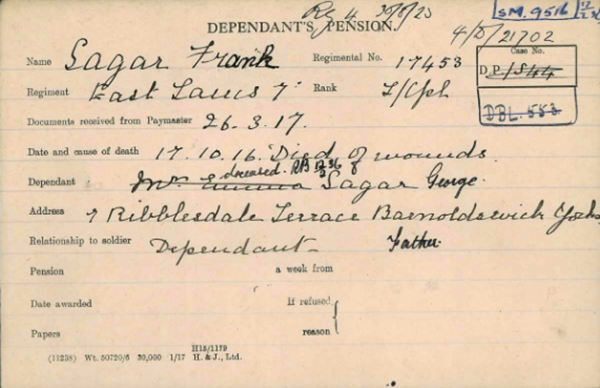 Rg 4. 30/8/20
SM. 9516 12/2 36
DEPENDANT'S PENSION.
4/D/21702
Name Sagar Frank Regimental No. 17453
Case No.
D.P./S44
Regiment East Lancs 7. Rank L/Cpl
DBL. 553
Documents received from Paymaster 26.3.17.
Date and cause of death 17.10.16. Died of wounds.
deceased.
Dependant Mrs Emma Sagar George.
Address 7 Ribblesdale Terrace Barnoldswick Yorks
Relationship to soldier Dependant Father.
Pension a week from
Date awarded If refused,
Papers reason
H15/1179
(11238) Wt. 50720/6 30,000 1/17 H. & J., Ltd.